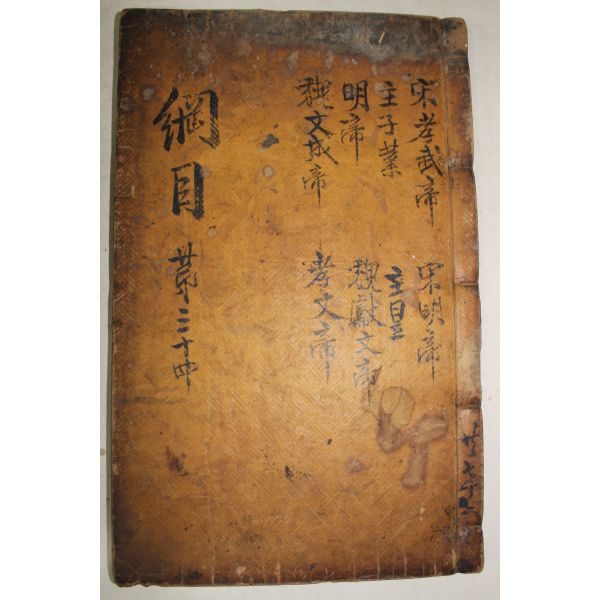 宋孝武帝
主子業
明帝
魏文成帝
宋明帝
主昱
魏獻文帝
孝文帝
綱目
苐三十
共七十